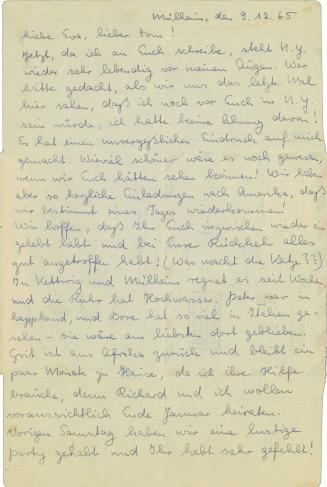 Mülheim, den 9.12.65
liebe Eva, lieber Tom!
Jetzt, da ich an Euch schreibe, steht N.Y.
wieder sehr lebendig vor meinen Augen. Wer
hätte gedacht, als wir uns das letzte Mal
hier sahen, daß ich noch vor Euch in N.Y.
sein würde, ich hatte keine Ahnung davon!
Es hat einen unvergeßlichen Eindruck auf mich
gemacht. Wieviel schöner wäre es noch gewesen,
wenn wir Euch hätten sehen können! Wir haben
aber so herzliche Einladungen nach Amerika, daß
wir bestimmt eines Tages wiederkommen!
Wir hoffen, daß Ihr Euch inzwischen wieder ein
gelebt habt und bei Eurer Rückkehr alles
gut angetroffen habt! (Was macht die Katze??)
In Kettwig und Mülheim regnet es seit Wochen
und die Ruhr hat Hochwasser. Peter war in
Lappland, und Dore hat so viel in Italien ge-
sehen - sie wäre am liebsten dort geblieben.
Grit ist aus Afrika zurück und bleibt ein
paar Monate zu Hause, da ich ihre Hilfe
brauche, denn Richard und ich wollen
voraussichtlich Ende Januar heiraten.
Vorigen Samstag haben wir eine lustige
Party gehabt und Ihr habt sehr gefehlt!